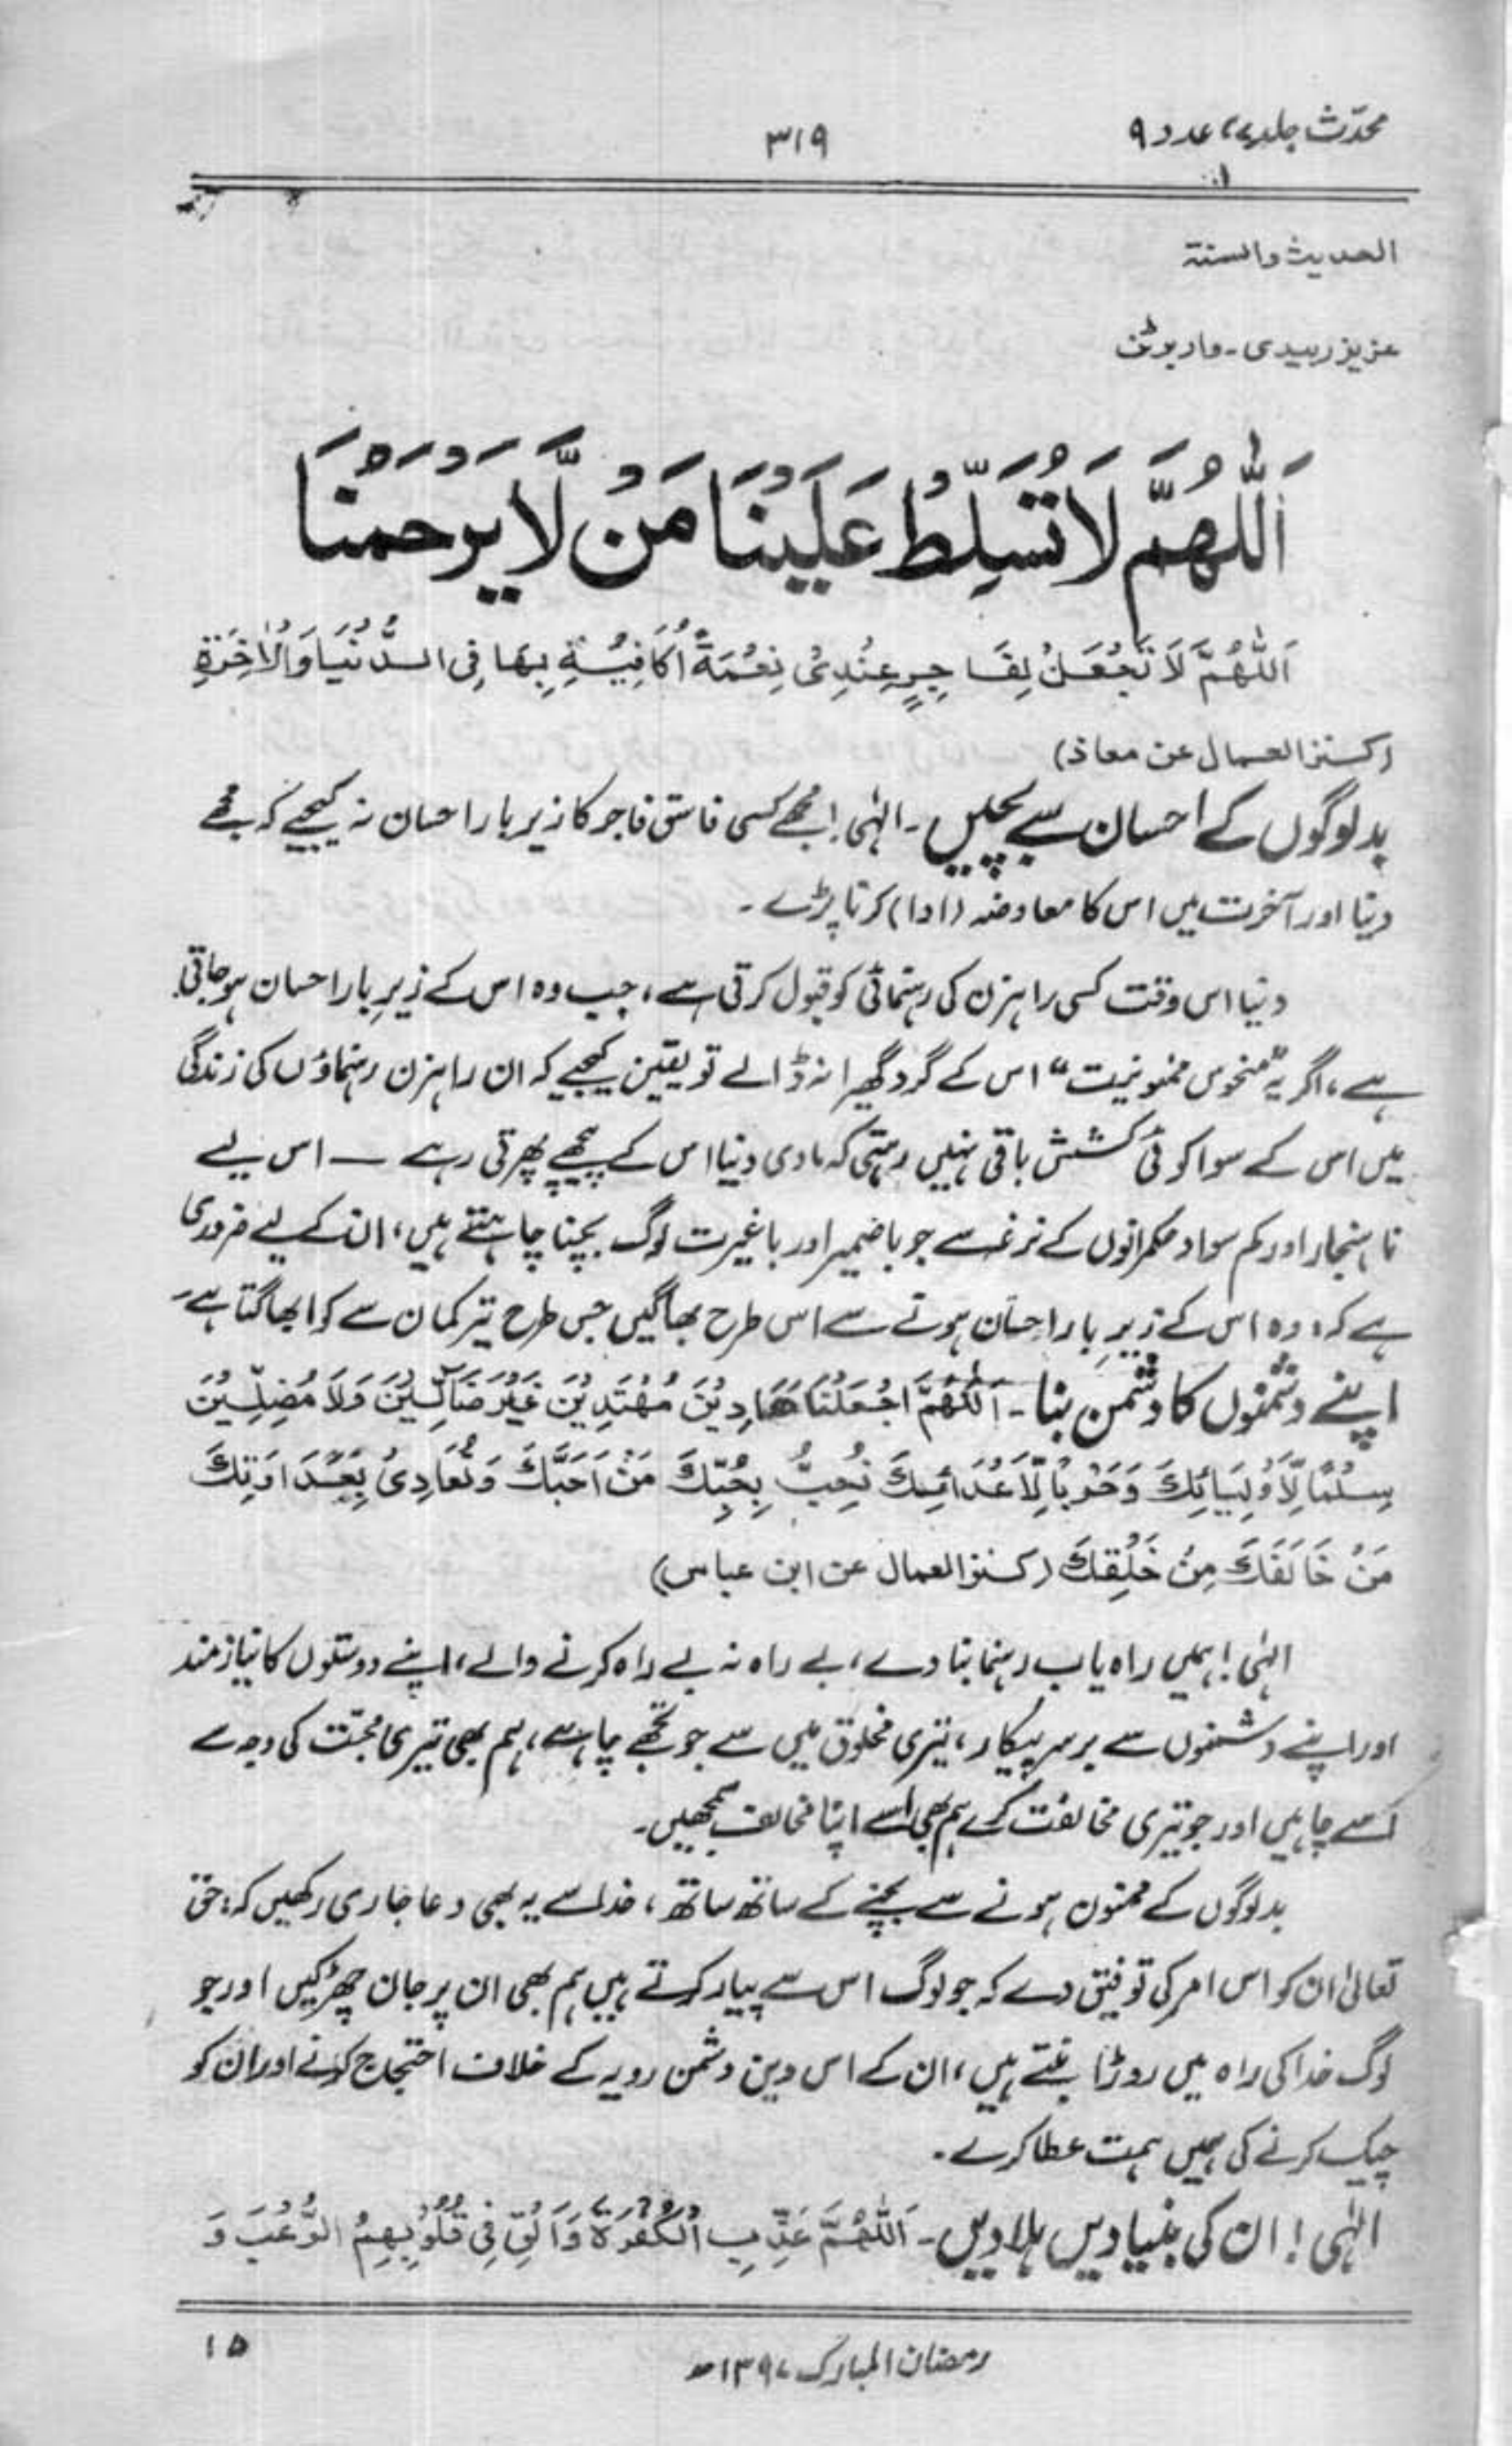 محدّث جلد ۷، عدد ۹
۳۱۹
الحديث والسنة
عزیز زبیدی - واربرٹن
اَللّٰهُمَّ لَا تُسَلِّطْ عَلَيْنَا مَنْ لَّا يَرْحَمُنَا
اَللّٰهُمَّ لَا تَجْعَلْ لِفَاجِرٍ عِنْدِیْ نِعْمَةً اُكَافِيْهِ بِهَا فِی الدُّنْيَا وَالْاٰخِرَةِ
(كنز العمال عن معاذ)
بد لوگوں کے احسان سے بچیں - الٰہی! مجھے کسی فاسق فاجر کا زیر بار احسان نہ کیجیے کہ مجھے
دنیا اور آخرت میں اس کا معاوضہ (ادا) کرنا پڑے -
دنیا اس وقت کسی راہزن کی رہنمائی کو قبول کرتی ہے، جب وہ اس کے زیرِ بار احسان ہو جاتی
ہے، اگر یہ "منحوس ممنونیت" اس کے گرد گھیرا نہ ڈالے تو یقین کیجیے کہ ان راہزن رہنماؤں کی زندگی
میں اس کے سوا کوئی کشش باقی نہیں رہتی کہ مادی دنیا اس کے پیچھے پھرتی رہے — اس لیے
ناہنجار اور کم سواد حکمرانوں کے نرغہ سے جو باضمیر اور باغیرت لوگ بچنا چاہتے ہیں، ان کے لیے ضروری
ہے کہ: وہ اس کے زیرِ بار احسان ہونے سے اس طرح بھاگیں جس طرح تیر کمان سے کوا بھاگتا ہے -
اپنے دشمنوں کا دشمن بنا - اَللّٰهُمَّ اجْعَلْنَا هَادِيْنَ مُهْتَدِيْنَ غَيْرَ ضَآلِّيْنَ وَلَا مُضِلِّيْنَ
سِلْمًا لِّاَوْلِيَائِكَ وَحَرْبًا لِّاَعْدَائِكَ نُحِبُّ بِحُبِّكَ مَنْ اَحَبَّكَ وَنُعَادِیْ بِعَدَاوَتِكَ
مَنْ خَالَفَكَ مِنْ خَلْقِكَ (كنز العمال عن ابن عباس)
الٰہی! ہمیں راہ یاب رہنما بنا دے، بے راہ نہ بے راہ کرنے والے، اپنے دوستوں کا نیازمند
اور اپنے دشمنوں سے برسرپیکار، تیری مخلوق میں سے جو تجھے چاہے، ہم بھی تیری محبّت کی وجہ سے
اسے چاہیں اور جو تیری مخالفت کرے ہم بھی اسے اپنا مخالف سمجھیں -
بد لوگوں کے ممنون ہونے سے بچنے کے ساتھ ساتھ، خدا سے یہ بھی دعا جاری رکھیں کہ: حق
تعالیٰ ان کو اس امر کی توفیق دے کہ جو لوگ اس سے پیار کرتے ہیں ہم بھی ان پر جان چھڑکیں اور جو
لوگ خدا کی راہ میں روڑا بنتے ہیں، ان کے اس دین دشمن رویہ کے خلاف احتجاج کرنے اور ان کو
چیک کرنے کی ہمیں ہمت عطا کرے -
الٰہی! ان کی بنیادیں ہلا دیں - اَللّٰهُمَّ عَذِّبِ الْكَفَرَةَ وَاَلْقِ فِیْ قُلُوْبِهِمُ الرُّعْبَ وَ
رمضان المبارک ۱۳۹۷ھ
۱۵